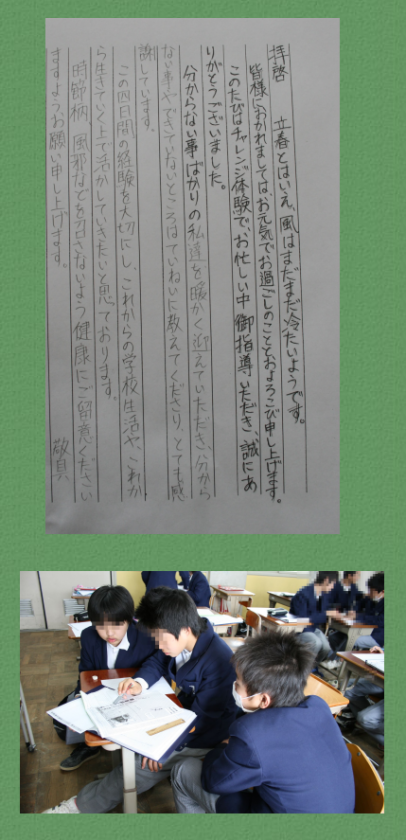 拝啓　立春とはいえ、風はまだまだ冷たいようです。
皆様におかれましては、お元気でお過ごしのこととおよろこび申し上げます。
このたびはチャレンジ体験で、お忙しい中御指導いただき、誠にあ
りがとうございました。
分からない事ばかりの私達を暖かく迎えていただき、分から
ない事やできていないところはていねいに教えてくださり、とても感
謝しています。
この四日間の経験を大切にし、これからの学校生活や、これか
ら生きていく上で活かしていきたいと思っております。
時節柄、風邪などを召さないよう健康にご留意ください
ますようお願い申し上げます。
敬具